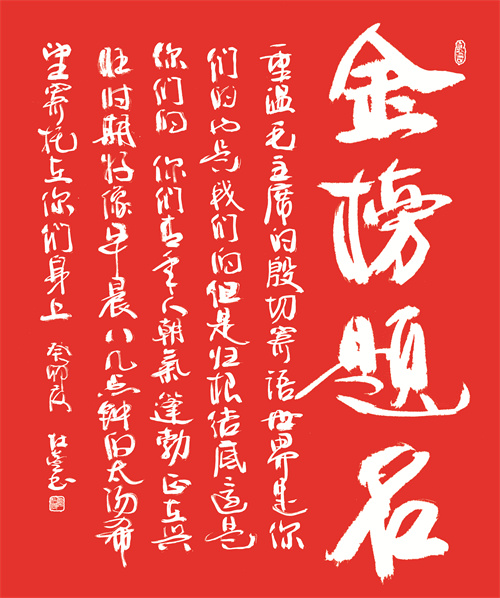 金榜题名
重温毛主席的殷切寄语世界是你
们的也是我们的但是归根结底这是
你们的 你们青年人朝氣蓬勃正在兴
旺时期好像早晨八九点钟的太阳希
望寄托在你们身上 癸卯